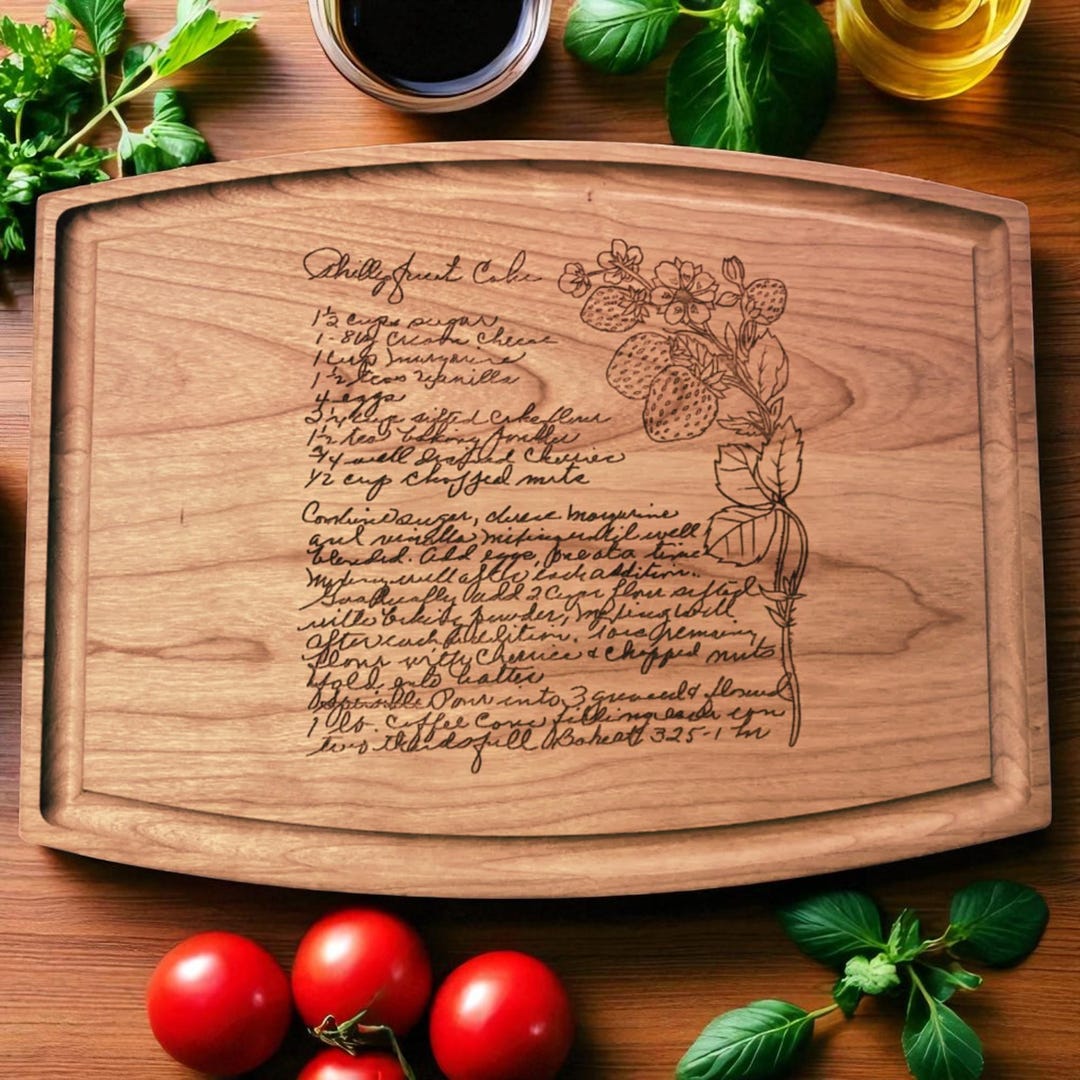 Philly fruit Cake
1½ cups sugar
1-8oz Cream Cheese
1 Cup margarine
1½ teas vanilla
4 eggs
2¼ cup sifted Cake flour
1½ teas baking powder
3/4 well drained Cherries
1/2 cup chopped nuts
Combine sugar, cheese margarine
and vanilla mixing until well
blended. Add eggs, one at a time
mixing well after each addition.
Gradually add 2 Cups flour sifted
with baking powder, mixing well
after each addition. Toss remaining
flour with Cherries & chopped nuts
fold into batter
Pour into 3 greased & floured
1 lb. Coffee Cans filling each can
two thirds full Bake at 325-1 hr